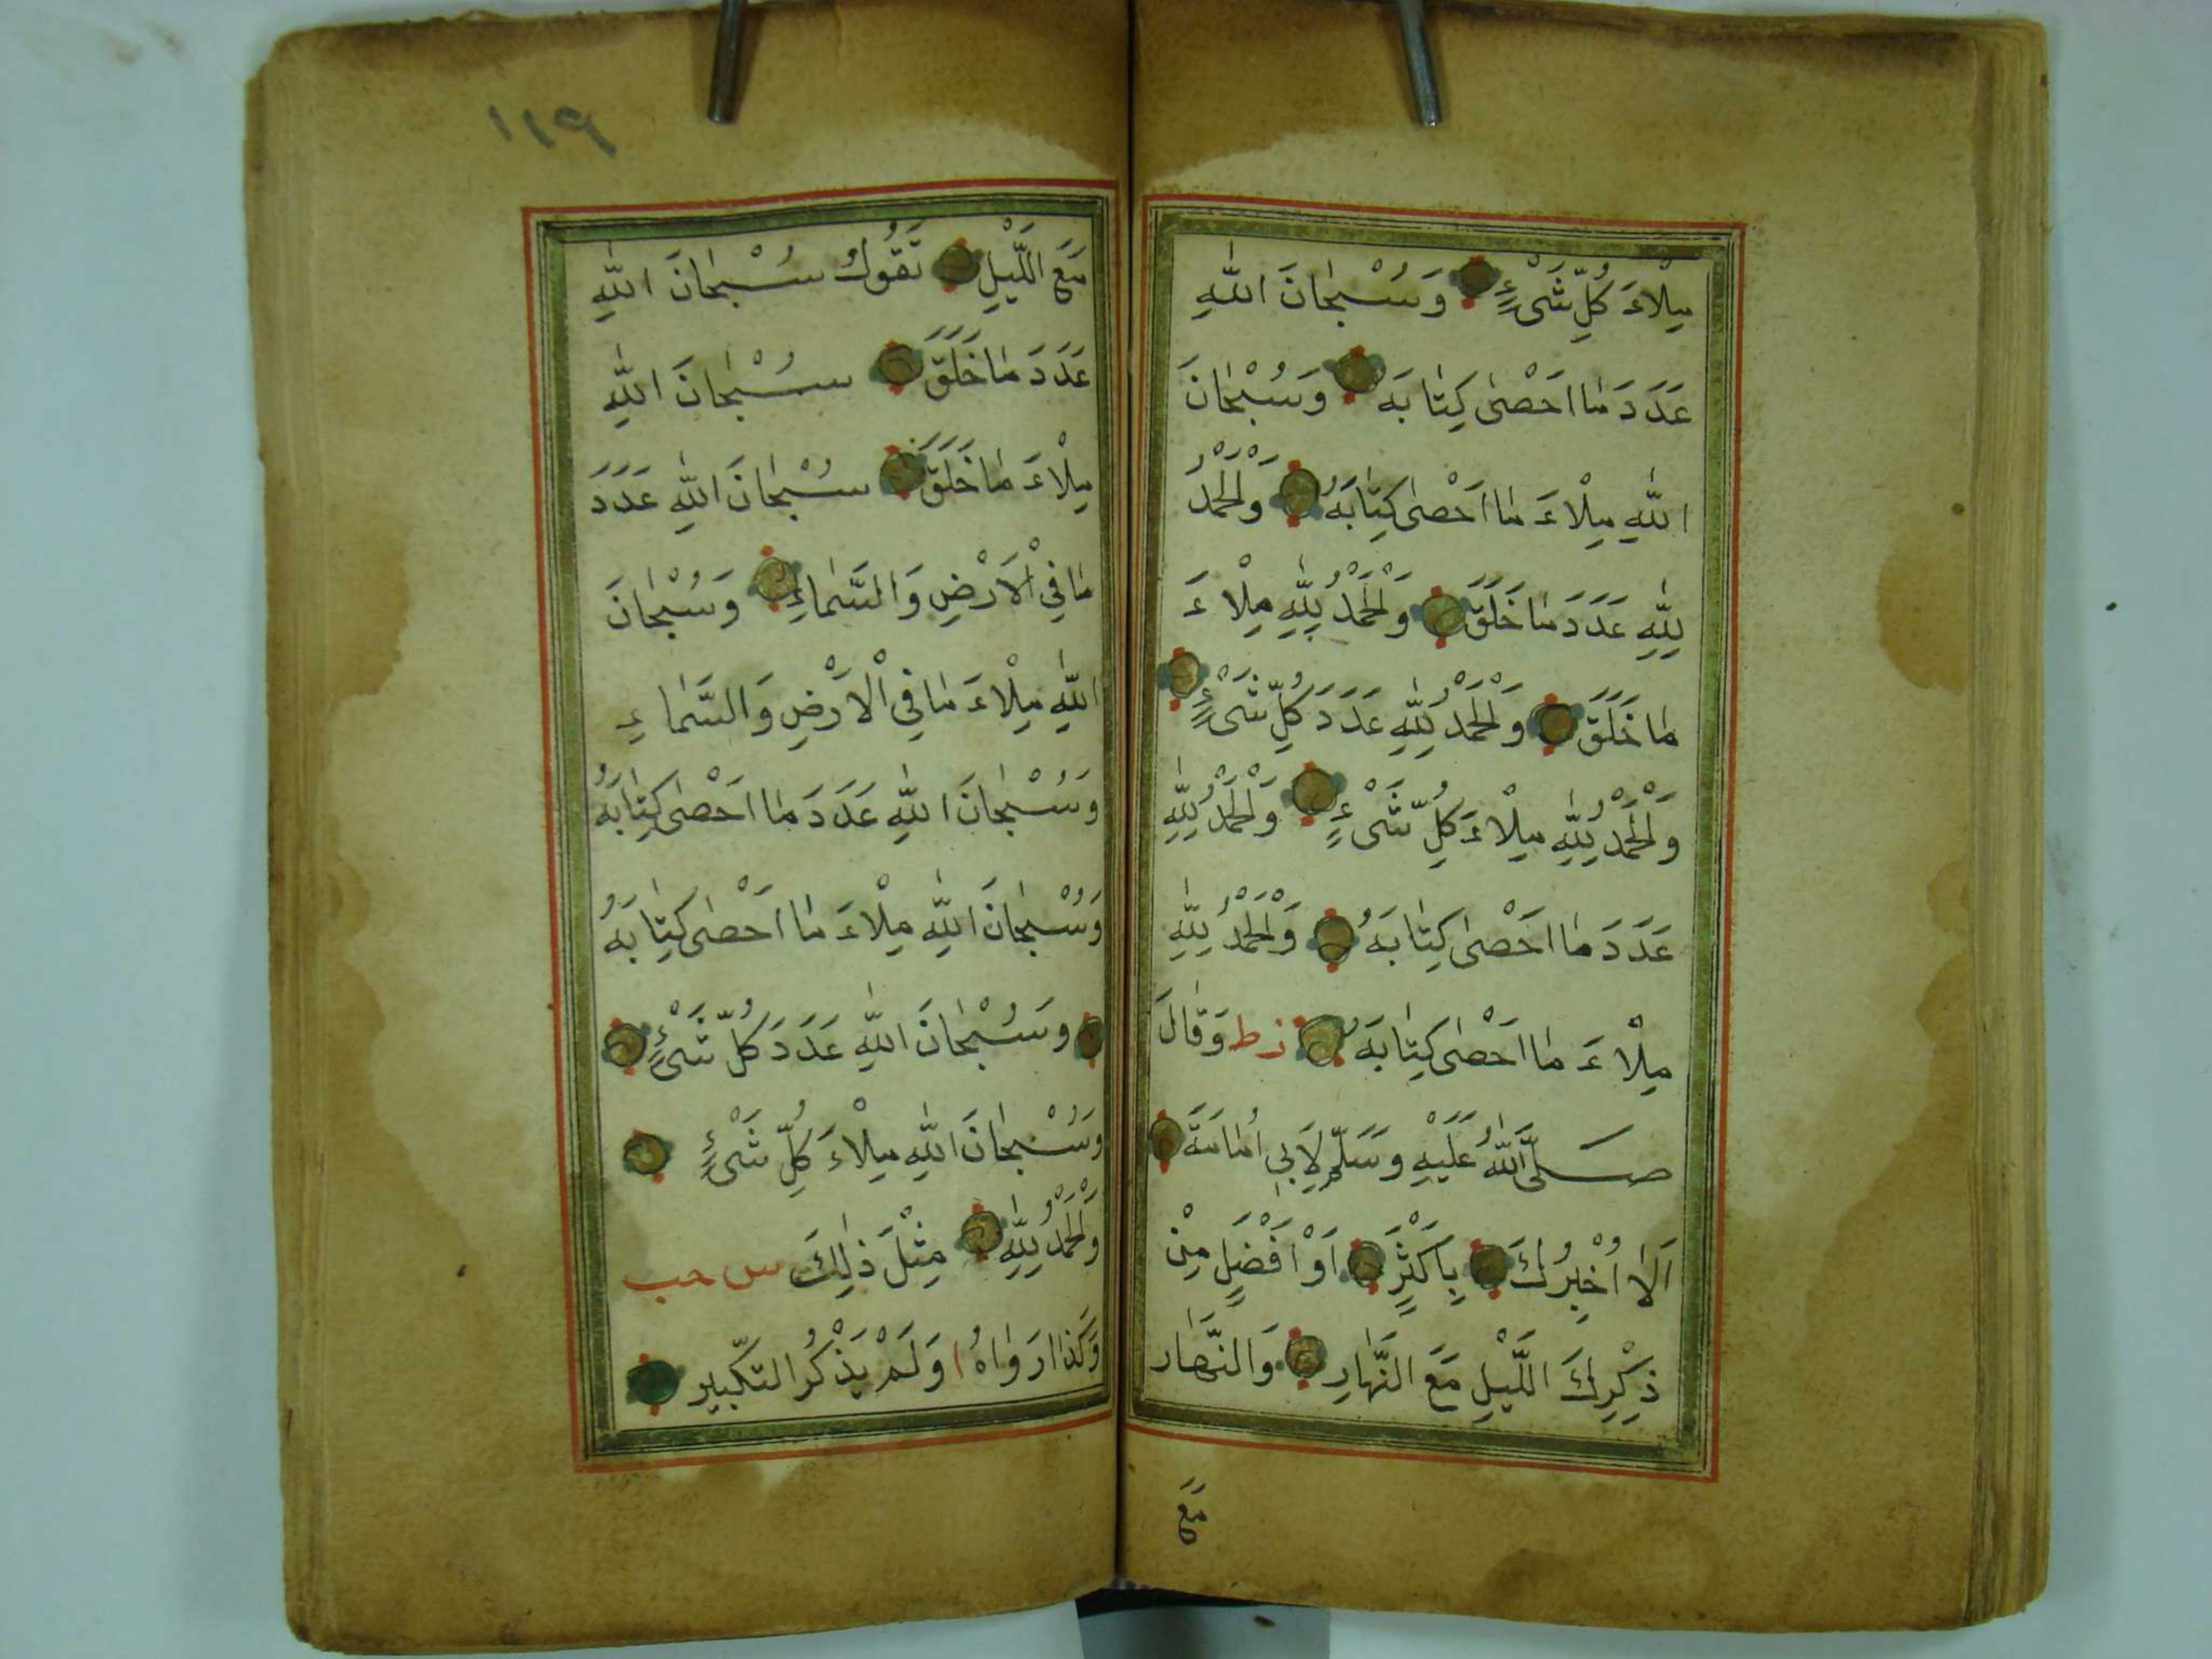 مِلْاءَ كُلِّ شَىْءٍ وَسُبْحٰانَ اللّٰهِ
عَدَدَ مٰا اَحْصٰى كِتٰابَهُ وَسُبْحٰانَ
اللّٰهِ مِلْاءَ مٰا اَحْصٰى كِتٰابَهُ وَلْحَمْدُ
لِلّٰهِ عَدَدَ مٰا خَلَقَ وَلْحَمْدُ لِلّٰهِ مِلْاءَ
مٰا خَلَقَ وَلْحَمْدُ لِلّٰهِ عَدَدَ كُلِّ شَىْءٍ
وَلْحَمْدُ لِلّٰهِ مِلْاءَ كُلِّ شَىْءٍ وَلْحَمْدُ لِلّٰهِ
عَدَدَ مٰا اَحْصٰى كِتٰابَهُ وَلْحَمْدُ لِلّٰهِ
مِلْاءَ مٰا اَحْصٰى كِتٰابَهُ زط وَقٰالَ
صَلَّى اللّٰهُ عَلَيْهِ وَسَلَّمَ لِاَبِى اُمٰامَةَ
اَلٰا اُخْبِرُكَ بِاَكْثَرٍ اَوْ اَفْضَلٍ مِنْ
ذِكْرِكَ اللَّيْلِ مَعَ النَّهٰارِ وَالنَّهٰار
مَعَ
١١٩
مَعَ اللَّيْلِ تَقُولُ سُبْحٰانَ اللّٰهِ
عَدَدَ مٰا خَلَقَ سُبْحٰانَ اللّٰهِ
مِلْاءَ مٰا خَلَقَ سُبْحٰانَ اللّٰهِ عَدَدَ
مٰا فِي الْاَرْضِ وَالسَّمٰاءِ وَسُبْحٰانَ
اللّٰهِ مِلْاءَ مٰا فِي الْاَرْضِ وَالسَّمٰاءِ
وَسُبْحٰانَ اللّٰهِ عَدَدَ مٰا اَحْصٰى كِتٰابَهُ
وَسُبْحٰانَ اللّٰهِ مِلْاءَ مٰا اَحْصٰى كِتٰابَهُ
وَسُبْحٰانَ اللّٰهِ عَدَدَ كُلِّ شَىْءٍ
وَسُبْحٰانَ اللّٰهِ مِلْاءَ كُلِّ شَىْءٍ
وَلْحَمْدُ لِلّٰهِ مِثْلَ ذٰلِكَ س حب
وَكَذٰا رَوٰاهُ ا وَلَمْ يَذْكُرِ التَّكْبِيرِ